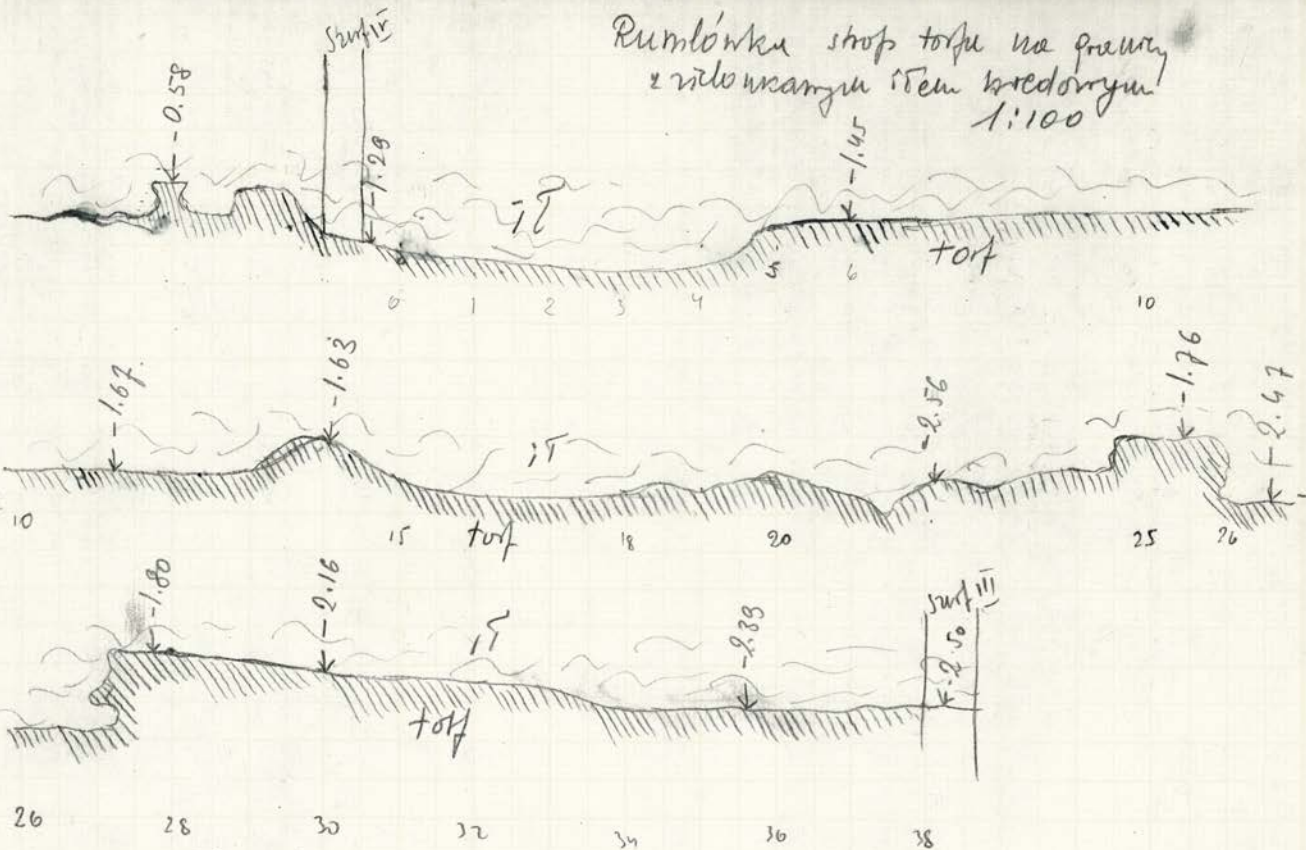 Rumlówka strop torfu na granicy
z zielonkawym iłem kredowym
1:100
Szurf IV
-0.58
-1.29
-1.45
ił
torf
0 1 2 3 4 5 6 10
-1.67
-1.63
-2.56
-1.76
-2.47
ił
torf
10 15 18 20 25 26
-1.80
-2.16
-2.39
szurf III
-2.50
ił
torf
26 28 30 32 34 36 38